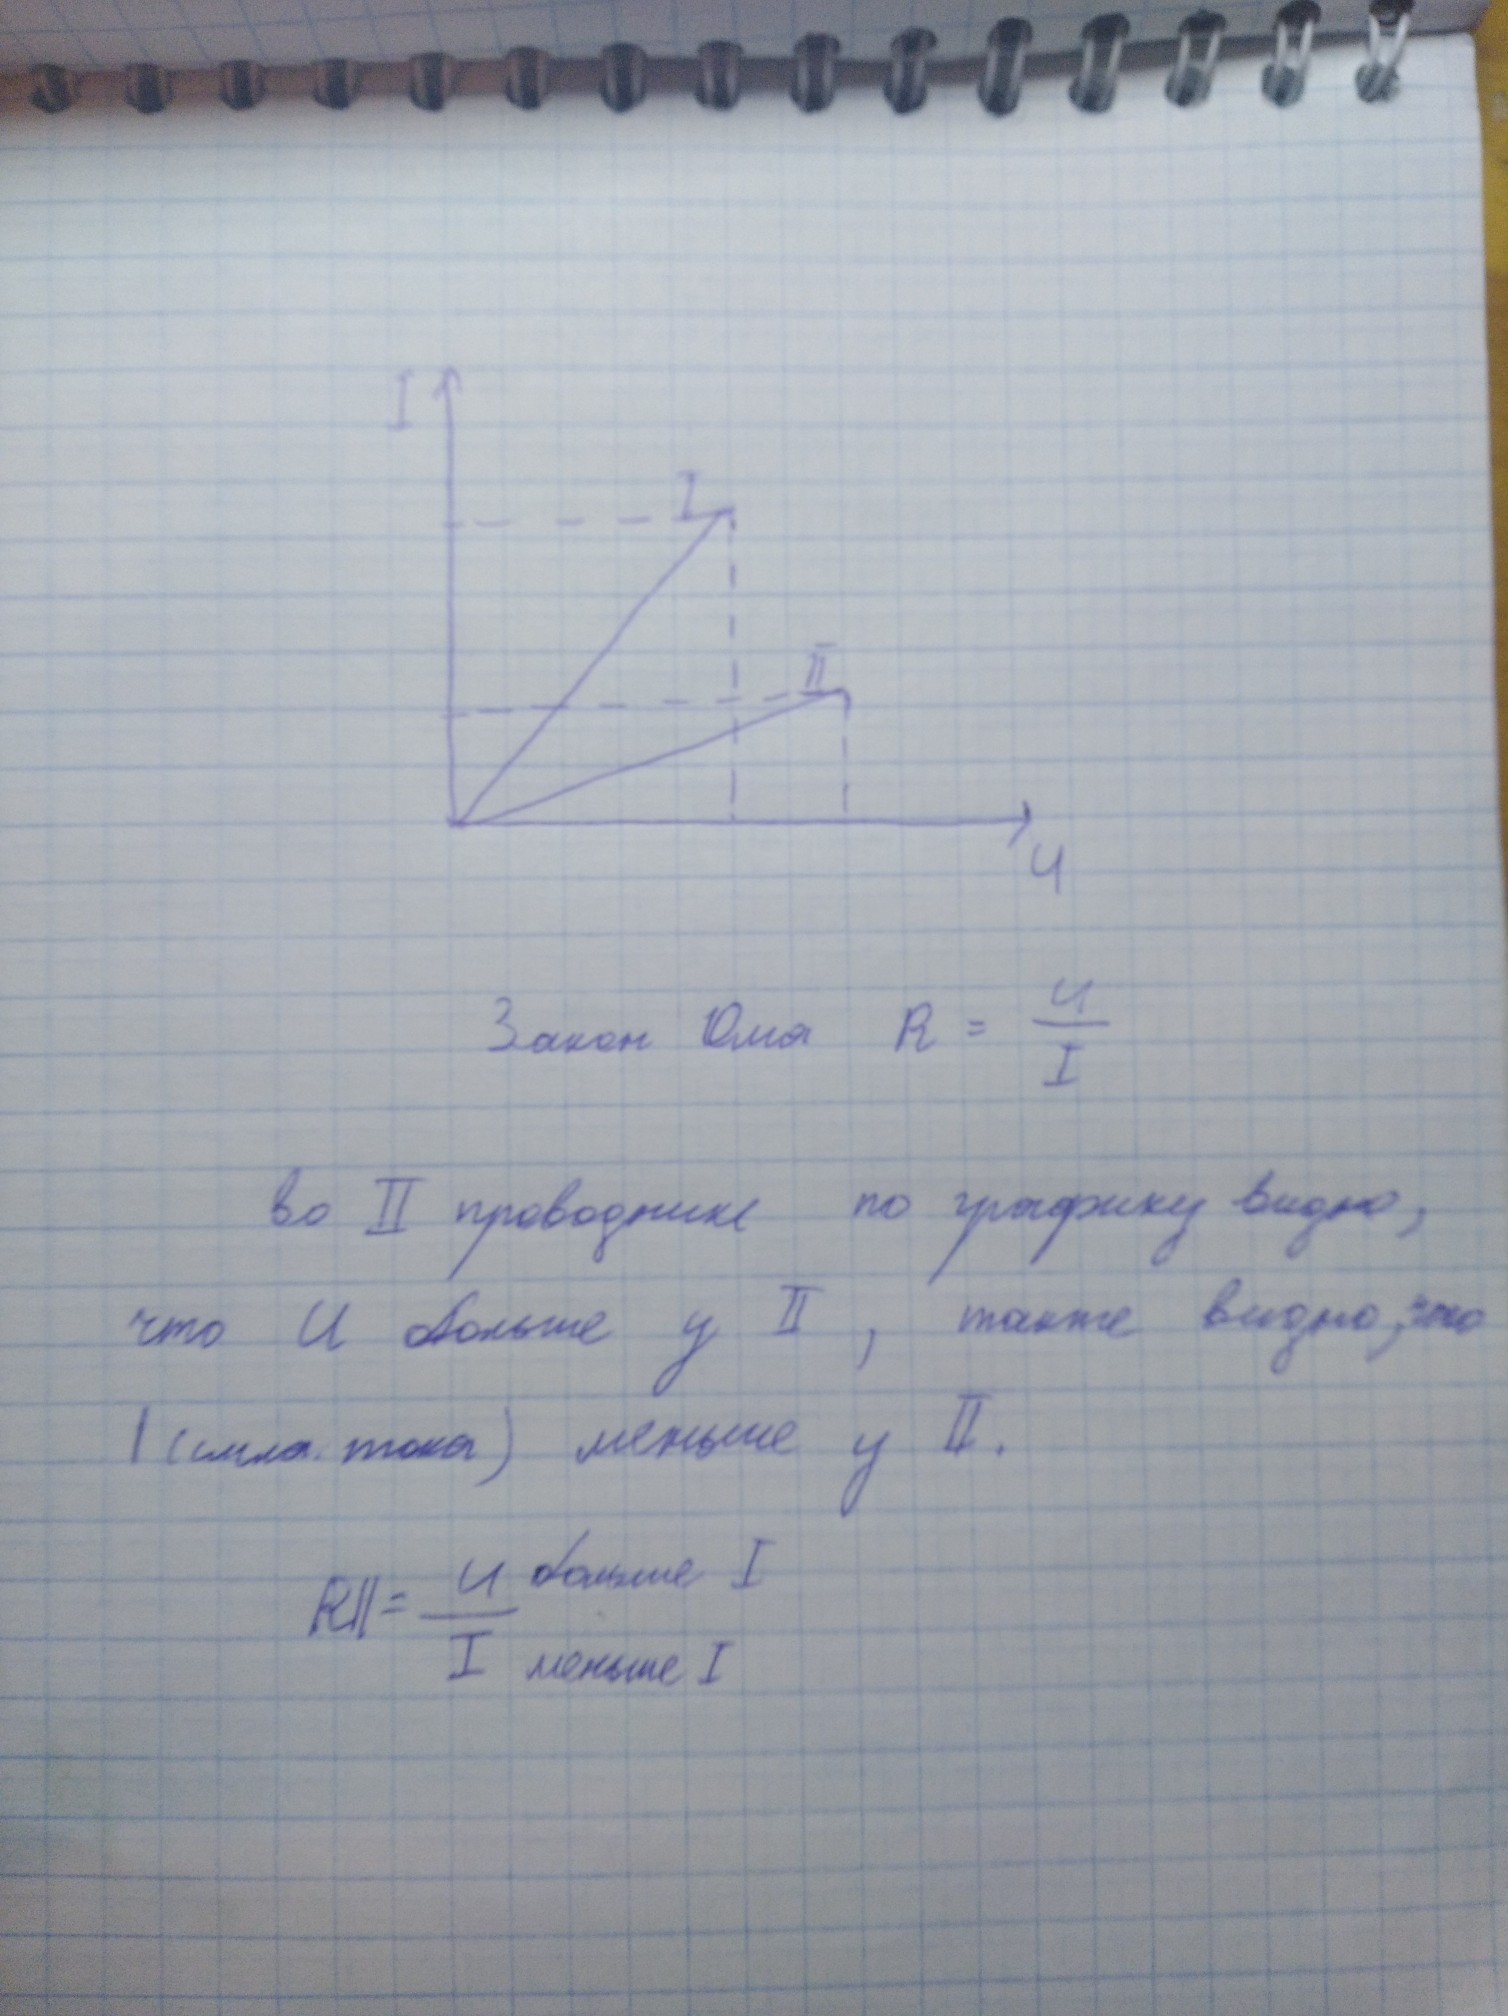 I
I
II
U
Закон Ома R = U/I
во II проводнике по графику видно,
что U больше у II, также видно, что
I (сила тока) меньше у II.
RII = U больше I / I меньше I